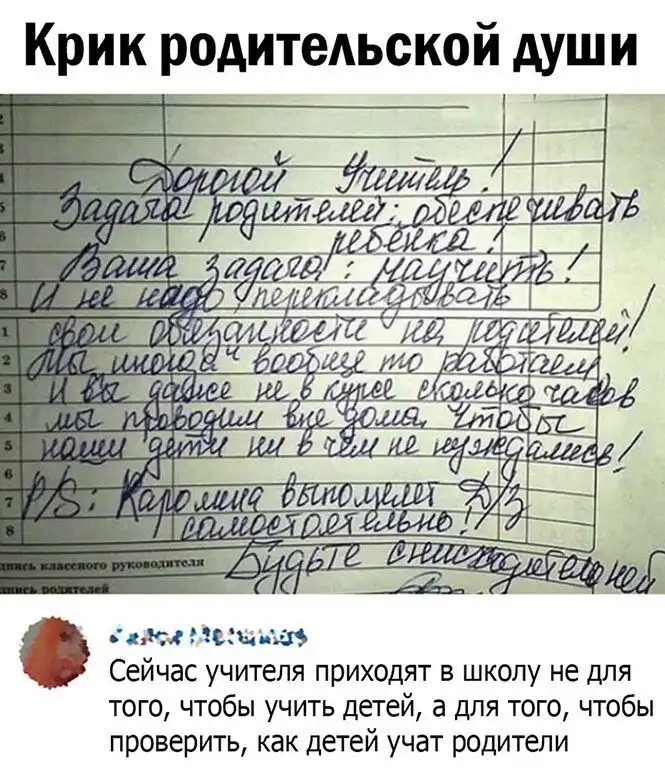 Крик родительской души
Дорогой Учитель!
Задача родителей: обеспечивать
ребёнка!
Ваша задача: научить!
И не надо перекладывать
свои обязанности на родителей!
Мы "иногда" вообще то работаем
И вы даже не в курсе сколько часов
мы проводим вне дома, чтобы
наши дети ни в чём не нуждались!
P/S: Каролина выполняет Д/З
самостоятельно!
Будьте снисходительней
пись классного руководителя
пись родителей
Сейчас учителя приходят в школу не для
того, чтобы учить детей, а для того, чтобы
проверить, как детей учат родители